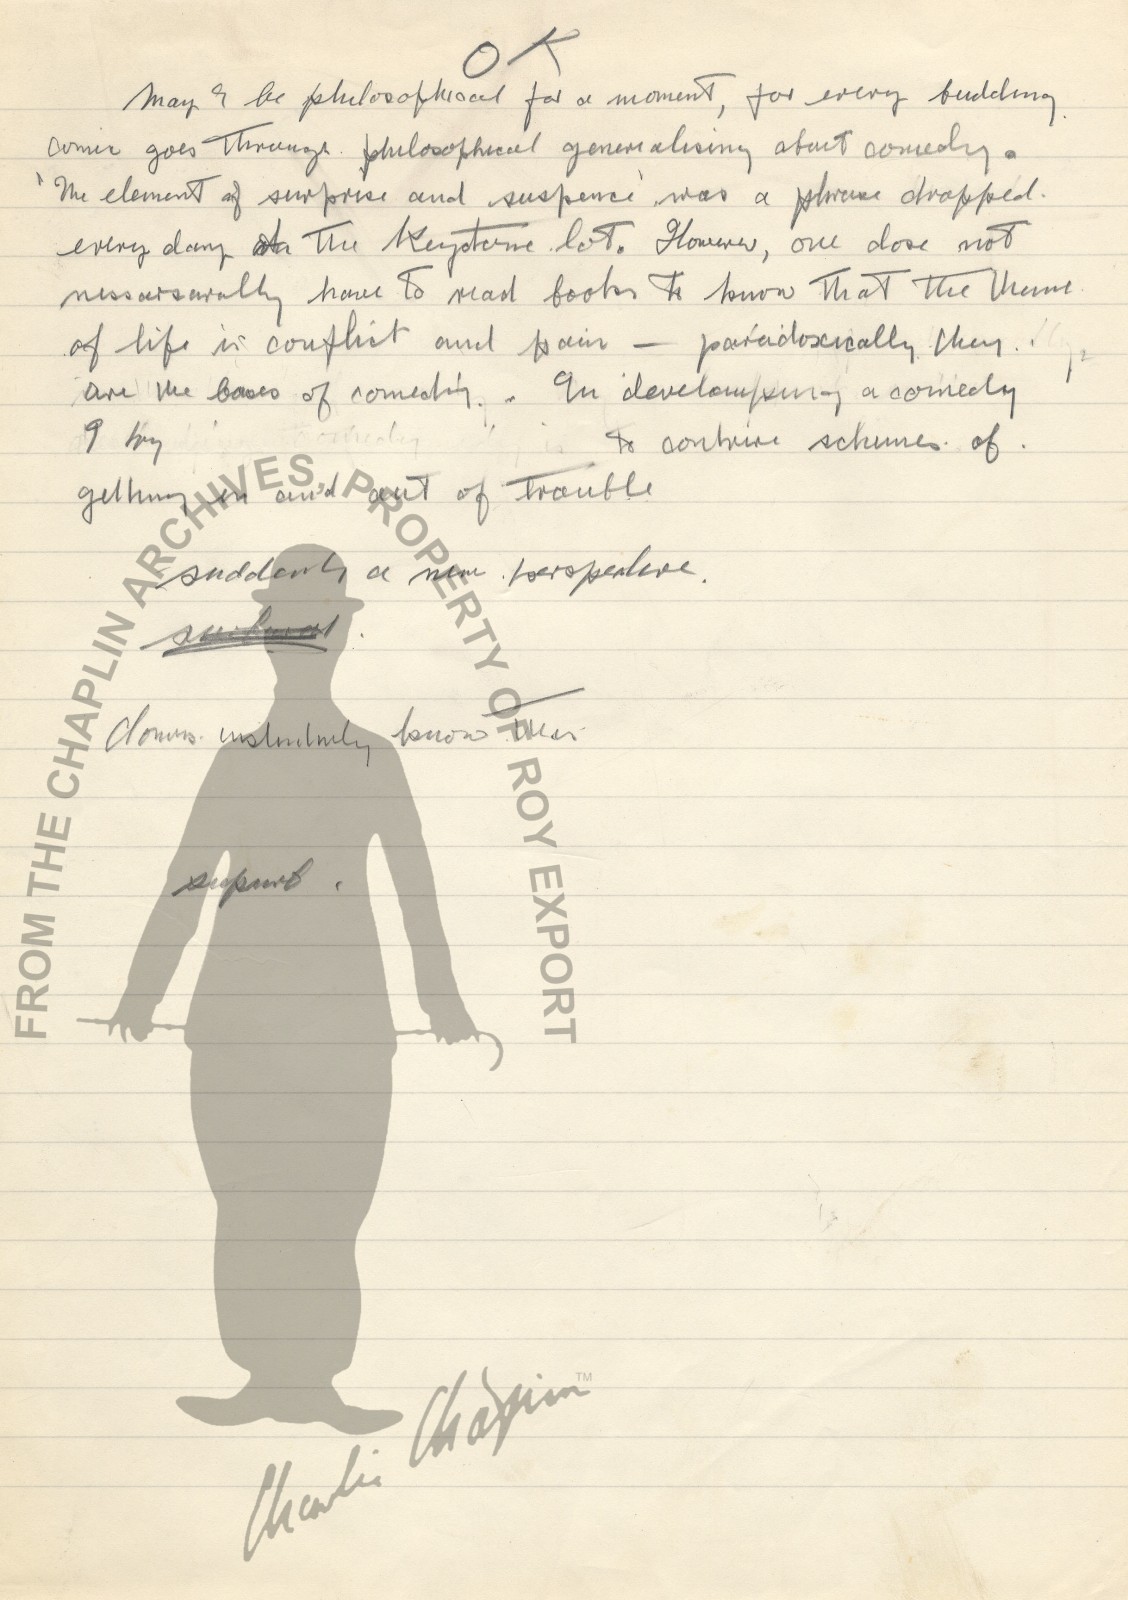 OK
May I be philosophical for a moment, for every budding
comic goes through philosophical generalising about comedy.
'The element of surprise and suspence' was a phrase dropped
every day on the Keystone lot. However, one dose not
nessarsarally have to read books to know that the theme
of life is conflict and pain — paradoxically they
are the bases of comedy. In developing a comedy
I try to contrive schemes of
getting in and out of trouble
suddenly a new perspective.
Clowns instinctively know this
supurb.
FROM THE CHAPLIN ARCHIVES, PROPERTY OF ROY EXPORT
Charlie Chaplin™